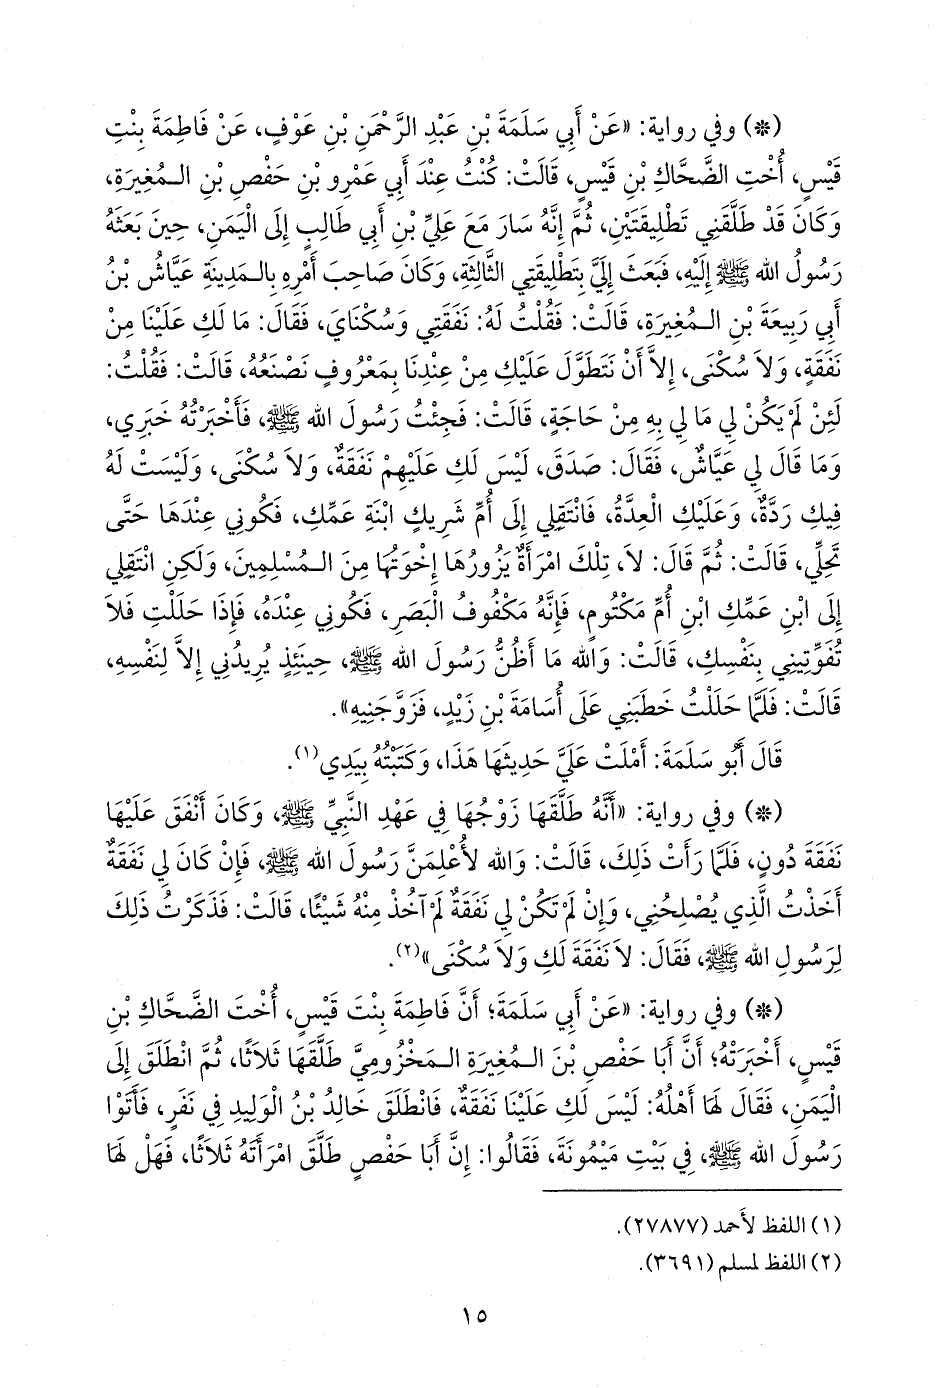 (*) وفي رواية: «عَنْ أَبِي سَلَمَةَ بْنِ عَبْدِ الرَّحْمَنِ بْنِ عَوْفٍ، عَنْ فَاطِمَةَ بِنْتِ
قَيْسٍ، أُخْتِ الضَّحَّاكِ بْنِ قَيْسٍ، قَالَتْ: كُنْتُ عِنْدَ أَبِي عَمْرِو بْنِ حَفْصِ بْنِ الـمُغِيرَةِ،
وَكَانَ قَدْ طَلَّقَنِي تَطْلِيقَتَيْنِ، ثُمَّ إِنَّهُ سَارَ مَعَ عَلِيِّ بْنِ أَبِي طَالِبٍ إِلَى الْيَمَنِ، حِينَ بَعَثَهُ
رَسُولُ الله ﷺ إِلَيْهِ، فَبَعَثَ إِلَيَّ بِتَطْلِيقَتِي الثَّالِثَةِ، وَكَانَ صَاحِبَ أَمْرِهِ بِالـمَدِينَةِ عَيَّاشُ بْنُ
أَبِي رَبِيعَةَ بْنِ الـمُغِيرَةِ، قَالَتْ: فَقُلْتُ لَهُ: نَفَقَتِي وَسُكْنَايَ، فَقَالَ: مَا لَكِ عَلَيْنَا مِنْ
نَفَقَةٍ، وَلاَ سُكْنَى، إِلاَّ أَنْ نَتَطَوَّلَ عَلَيْكِ مِنْ عِنْدِنَا بِمَعْرُوفٍ نَصْنَعُهُ، قَالَتْ: فَقُلْتُ:
لَئِنْ لَمْ يَكُنْ لِي مَا لِي بِهِ مِنْ حَاجَةٍ، قَالَتْ: فَجِئْتُ رَسُولَ الله ﷺ، فَأَخْبَرْتُهُ خَبَرِي،
وَمَا قَالَ لِي عَيَّاشٌ، فَقَالَ: صَدَقَ، لَيْسَ لَكِ عَلَيْهِمْ نَفَقَةٌ، وَلاَ سُكْنَى، وَلَيْسَتْ لَهُ
فِيكِ رَدَّةٌ، وَعَلَيْكِ الْعِدَّةُ، فَانْتَقِلِي إِلَى أُمِّ شَرِيكٍ ابْنَةِ عَمِّكِ، فَكُونِي عِنْدَهَا حَتَّى
تَحِلِّي، قَالَتْ: ثُمَّ قَالَ: لاَ، تِلْكَ امْرَأَةٌ يَزُورُهَا إِخْوَتُهَا مِنَ الـمُسْلِمِينَ، وَلَكِنِ انْتَقِلِي
إِلَى ابْنِ عَمِّكِ ابْنِ أُمِّ مَكْتُومٍ، فَإِنَّهُ مَكْفُوفُ الْبَصَرِ، فَكُونِي عِنْدَهُ، فَإِذَا حَلَلْتِ فَلاَ
تُفَوِّتِينِي بِنَفْسِكِ، قَالَتْ: وَالله مَا أَظُنُّ رَسُولَ الله ﷺ، حِينَئِذٍ يُرِيدُنِي إِلاَّ لِنَفْسِهِ،
قَالَتْ: فَلَمَّا حَلَلْتُ خَطَبَنِي عَلَى أُسَامَةَ بْنِ زَيْدٍ، فَزَوَّجَنِيهِ».
قَالَ أَبُو سَلَمَةَ: أَمْلَتْ عَلَيَّ حَدِيثَهَا هَذَا، وَكَتَبْتُهُ بِيَدِي(١).
(*) وفي رواية: «أَنَّهُ طَلَّقَهَا زَوْجُهَا فِي عَهْدِ النَّبِيِّ ﷺ، وَكَانَ أَنْفَقَ عَلَيْهَا
نَفَقَةَ دُونٍ، فَلَمَّا رَأَتْ ذَلِكَ، قَالَتْ: وَالله لأُعْلِمَنَّ رَسُولَ الله ﷺ، فَإِنْ كَانَ لِي نَفَقَةٌ
أَخَذْتُ الَّذِي يُصْلِحُنِي، وَإِنْ لَمْ تَكُنْ لِي نَفَقَةٌ لَمْ آخُذْ مِنْهُ شَيْئًا، قَالَتْ: فَذَكَرْتُ ذَلِكَ
لِرَسُولِ الله ﷺ، فَقَالَ: لاَ نَفَقَةَ لَكِ وَلاَ سُكْنَى»(٢).
(*) وفي رواية: «عَنْ أَبِي سَلَمَةَ؛ أَنَّ فَاطِمَةَ بِنْتَ قَيْسٍ، أُخْتَ الضَّحَّاكِ بْنِ
قَيْسٍ، أَخْبَرَتْهُ؛ أَنَّ أَبَا حَفْصِ بْنَ الـمُغِيرَةِ الـمَخْزُومِيَّ طَلَّقَهَا ثَلاَثًا، ثُمَّ انْطَلَقَ إِلَى
الْيَمَنِ، فَقَالَ لَهَا أَهْلُهُ: لَيْسَ لَكِ عَلَيْنَا نَفَقَةٌ، فَانْطَلَقَ خَالِدُ بْنُ الْوَلِيدِ فِي نَفَرٍ، فَأَتَوْا
رَسُولَ الله ﷺ، فِي بَيْتِ مَيْمُونَةَ، فَقَالُوا: إِنَّ أَبَا حَفْصٍ طَلَّقَ امْرَأَتَهُ ثَلاَثًا، فَهَلْ لَهَا
(١) اللفظ لأحمد (٢٧٨٧٧).
(٢) اللفظ لمسلم (٣٦٩١).
١٥